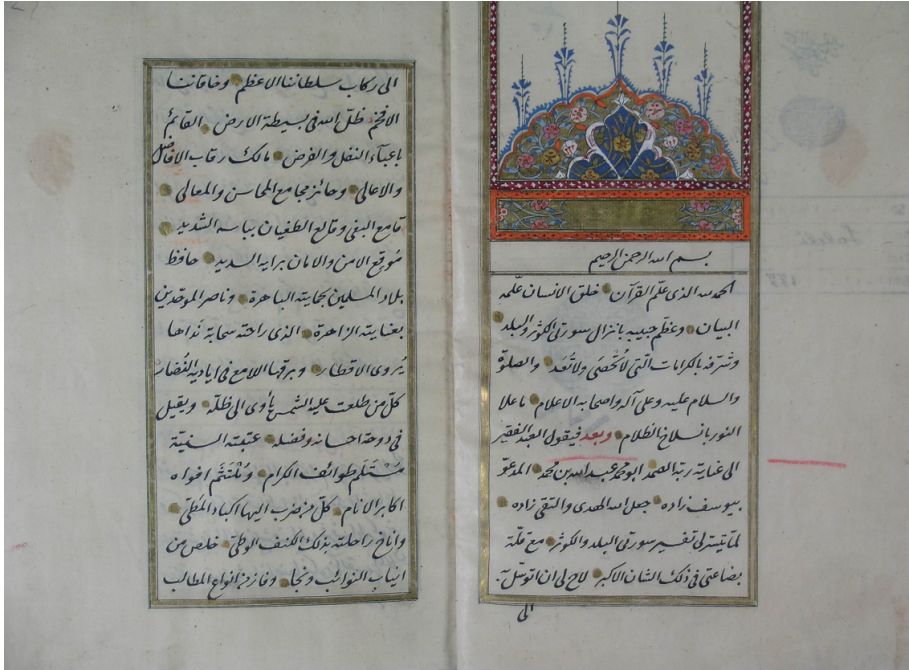 بسم الله الرحمن الرحيم
الحمد لله الذى علّم القرآن خلق الانسان علّمه
البيان وعظّم حبيبه بانزال سورتى الكوثر والبلد
وشرّفه بالكرامات الّتى لا تُحْصَى ولا تُعَد والصلوة
والسلام عليه وعلى آله واصحابه الاعلام ما علا
النور بانسلاخ الظلام وبعد فيقول العبد الفقير
الى عناية ربّه الصمد ابو محمد عبد الله بن محمد المدعوّ
بيوسف زاده جعل الله الهدى والتقى زاده
لمّا تيسّر لى تفسير سورتى البلد والكوثر مع قلّة
بضاعتى فى ذلك الشان الاكبر لاح لى ان اتوسّل به
الى
الى ركاب سلطاننا الاعظم وخاقاننا
الافخم ظلّ الله فى بسيطة الارض القائم
باعبآء النفل والفرض مالك رقاب الافاضل
والاعالى وحائز مجامع المحاسن والمعالى
قامع البغى وقالع الطغيان بباسه الشديد
مُوقع الامن والامان برايه السديد حافظ
بلاد المسلمين بحمايته الباهرة وناصر الموحّدين
بعنايته الزاهرة الذى راحته سحابة نداها
يُروى الاقطار وبرقها اللامع فى اياديه النُضار
كلّ من طلعت عليه الشمس يأوى الى ظلّه ويقيل
فى دوحة احسانه وفضله عتبته السنيّة
مُسْتَلَم طوائف الكرام ومُلْتَثَم افواه
اكابر الانام كلّ من ضرب اليها اكباد المَطِىّ
واناخ راحلته بذلك الكنف الوطىّ خلص من
انياب النوائب ونجا وفاز من انواع المطالب